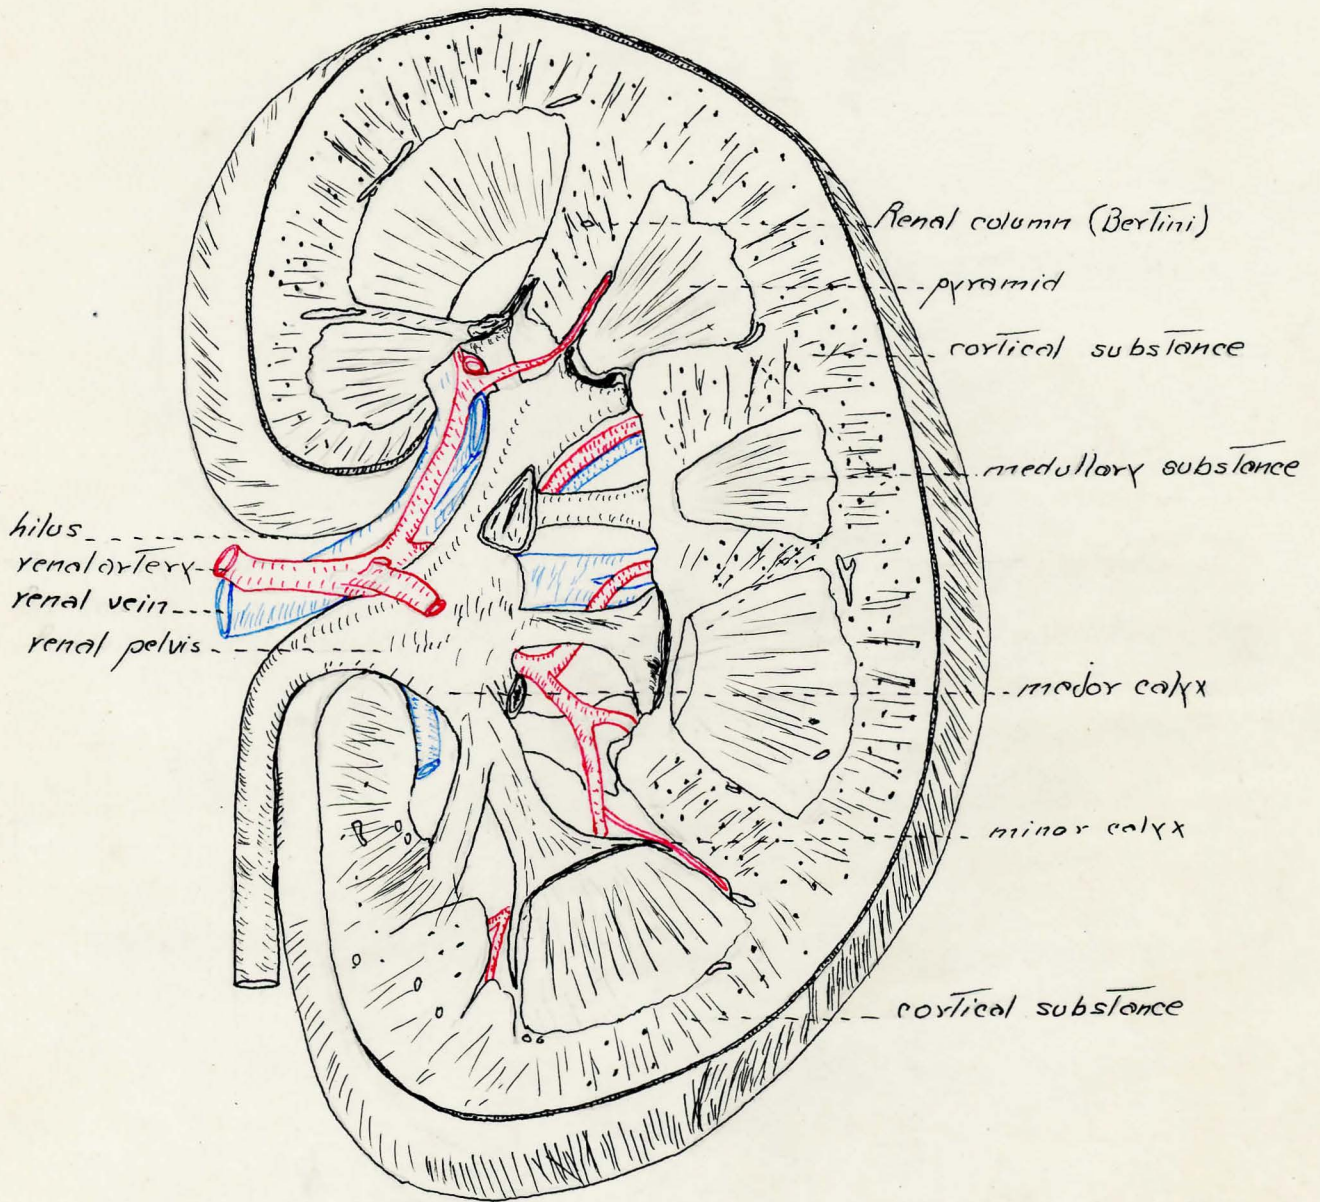 Renal column (Bertini)
pyramid
cortical substance
medullary substance
hilus
renal artery
renal vein
renal pelvis
major calyx
minor calyx
cortical substance